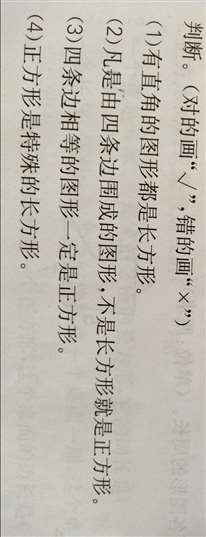 判断。(对的画“√”,错的画“×”)
(1)有直角的图形都是长方形。
(2)凡是由四条边围成的图形,不是长方形就是正方形。
(3)四条边相等的图形一定是正方形。
(4)正方形是特殊的长方形。